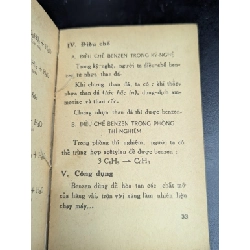 IV. Điều chế
A. ĐIỀU CHẾ BENZEN TRONG KỸ NGHỆ
Trong kỹ nghệ, người ta điều chế benzen
từ nhựa than đá.
Khi chưng than đá, ta có
nhựa than đá
Chưng nhựa than đá thì được benzen.
B. ĐIỀU CHẾ BENZEN TRONG PHÒNG
THÍ NGHIỆM
Trong phòng thí nghiệm, người ta có
thể trùng hợp axetylen để được benzen :
3 C₂H₂ → C₆H₆
V. Công dụng
Benzen dùng để hòa tan các chất mỡ
của hàng vải, trộn với xăng làm nhiên liệu
chạy máy...
33